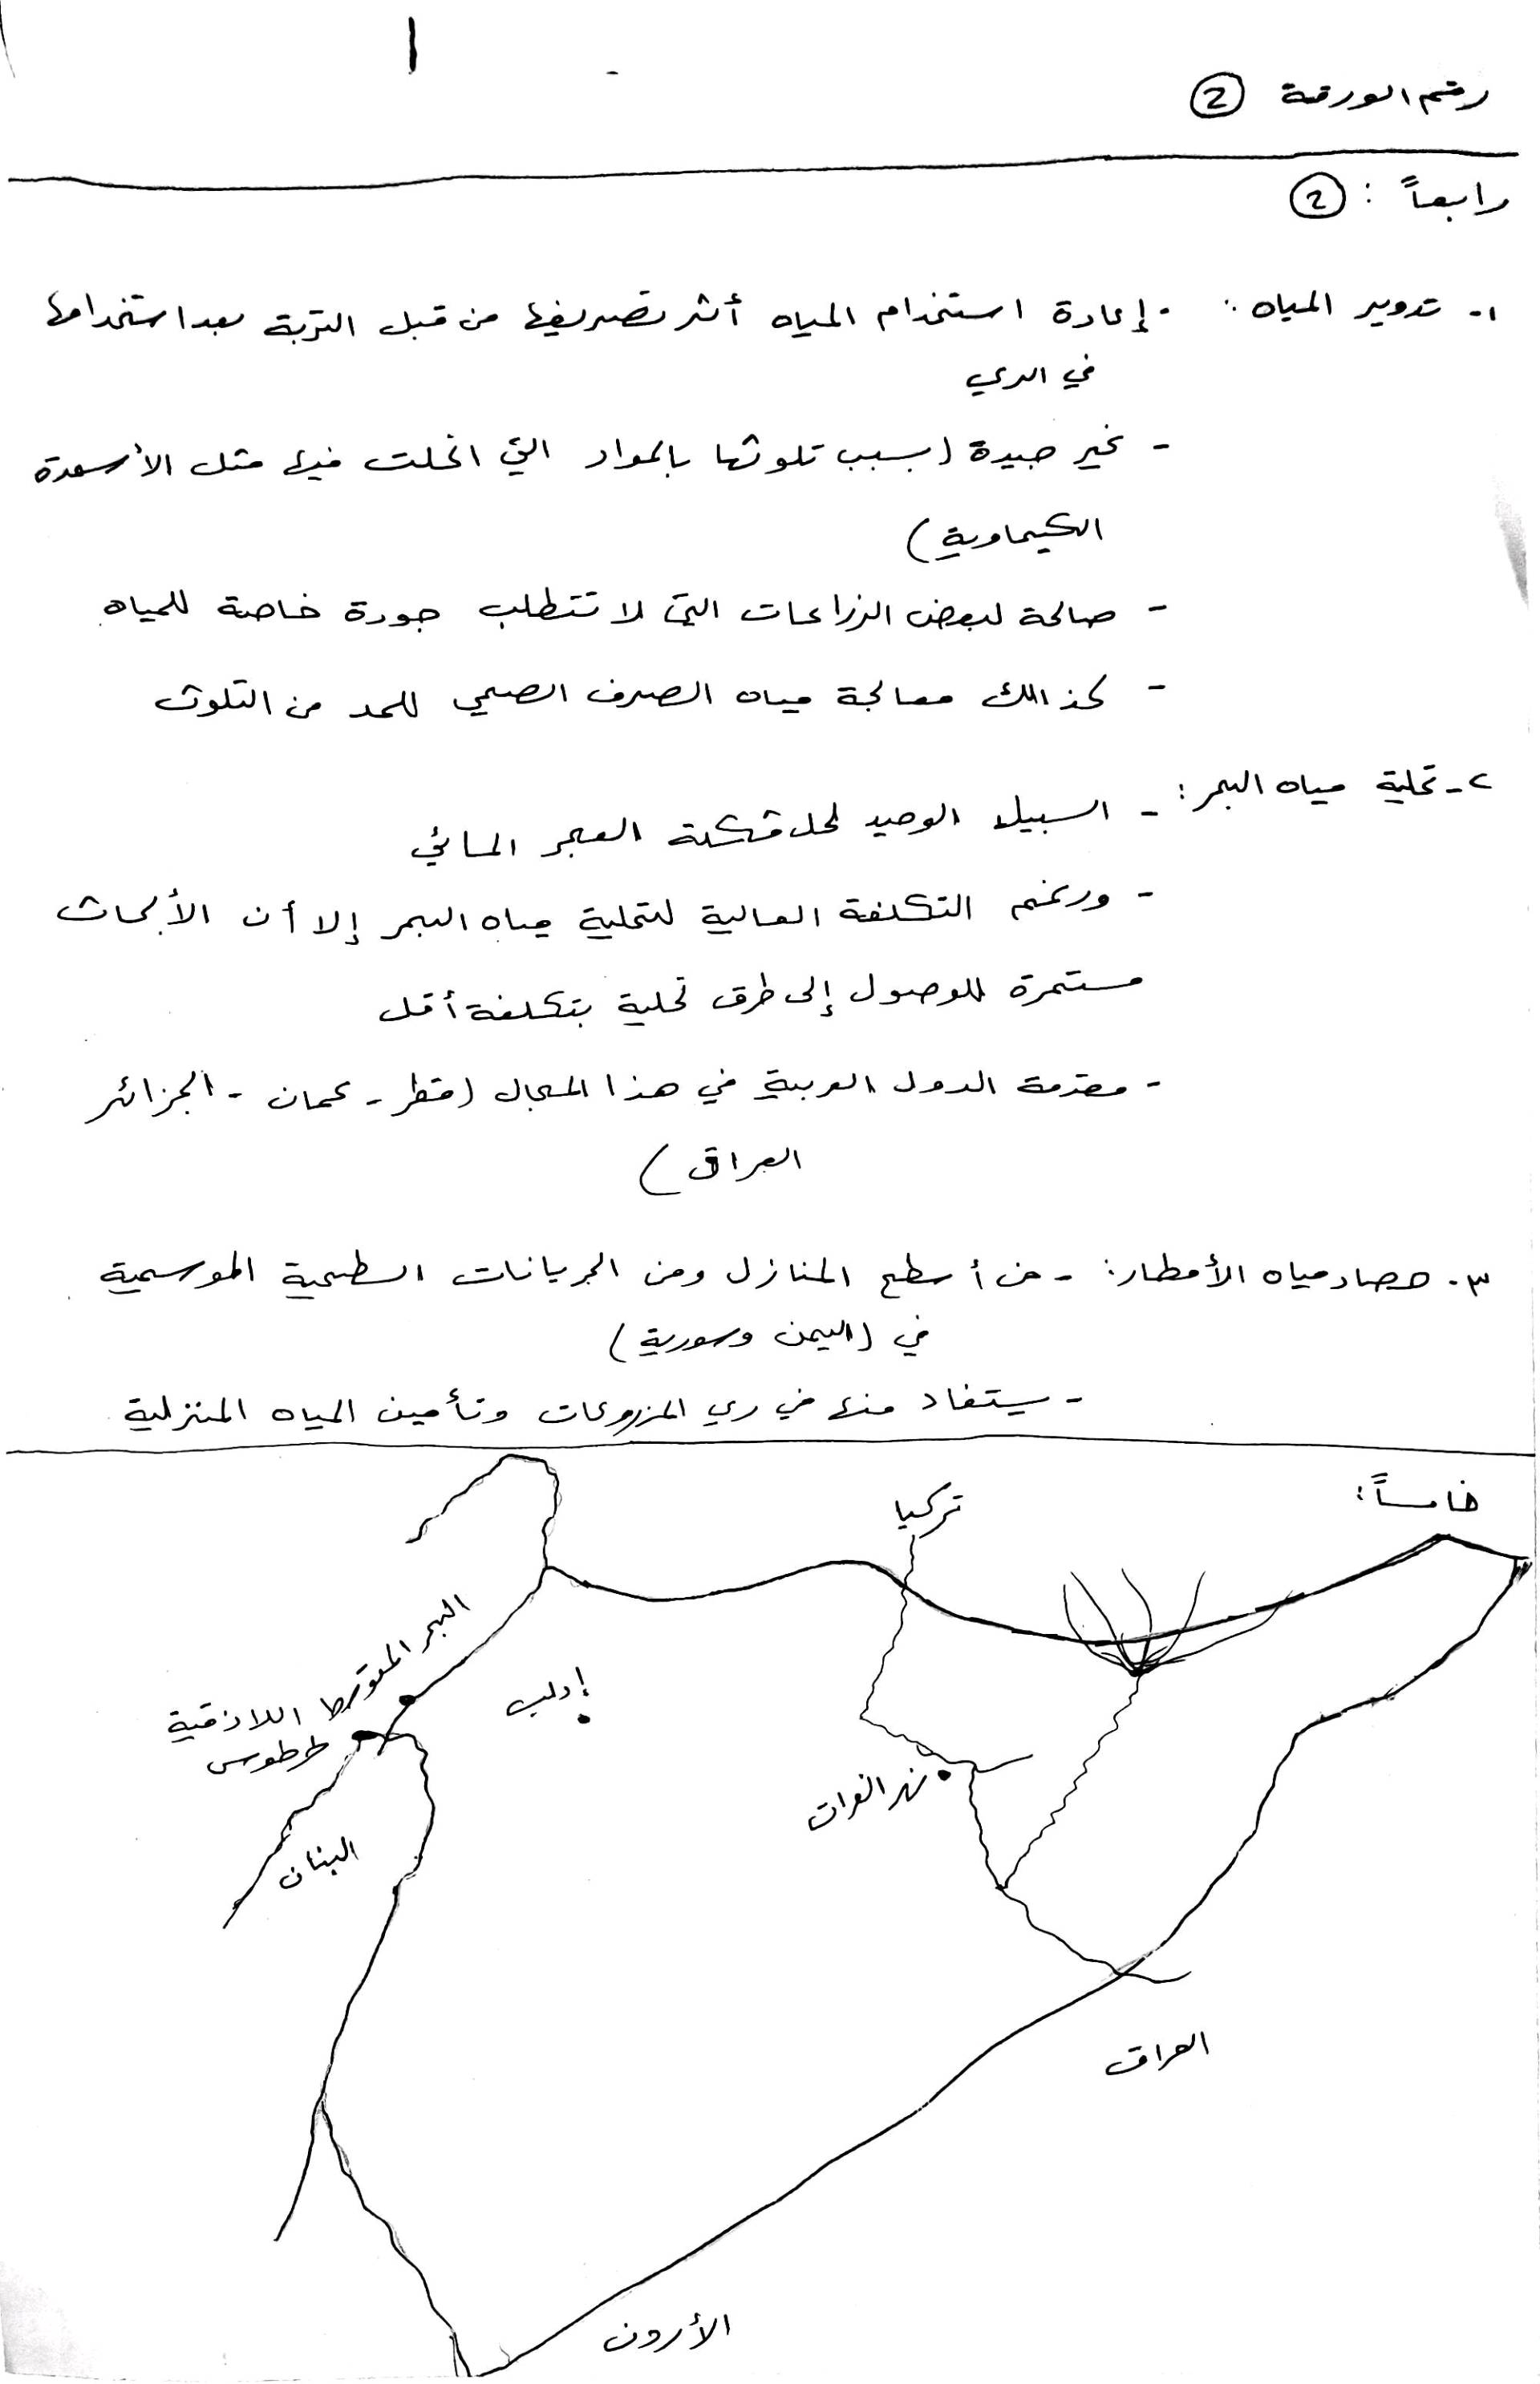 رقم الورقة 2
رابعاً : 2
١- تدوير المياه : - إعادة استخدام المياه أثر تصريفها من قبل التربة بعد استخدامها
في الري
- غير جيدة (بسبب تلوثها بالمواد التي انحلت فيها مثل الأسمدة
الكيماوية)
- صالحة لبعض الزراعات التي لا تتطلب جودة خاصة للمياه
- كذالك معالجة مياه الصرف الصحي للحد من التلوث
٢- تحلية مياه البحر : - السبيل الوحيد لحل مشكلة العجز المائي
- ورغم التكلفة العالية لتحلية مياه البحر إلا أن الأبحاث
مستمرة للوصول إلى طرق تحلية بتكلفة أقل
- مقدمة الدول العربية في هذا المجال (قطر - عمان - الجزائر
العراق)
٣- حصاد مياه الأمطار : - من أسطح المنازل ومن الجريانات السطحية الموسمية
في (اليمن وسورية)
- يستفاد منها في ري المزروعات وتأمين المياه المنزلية
خامساً :
تركيا
البحر المتوسط
إدلب
اللاذقية
طرطوس
نهر الفرات
البنان
العراق
الأردن